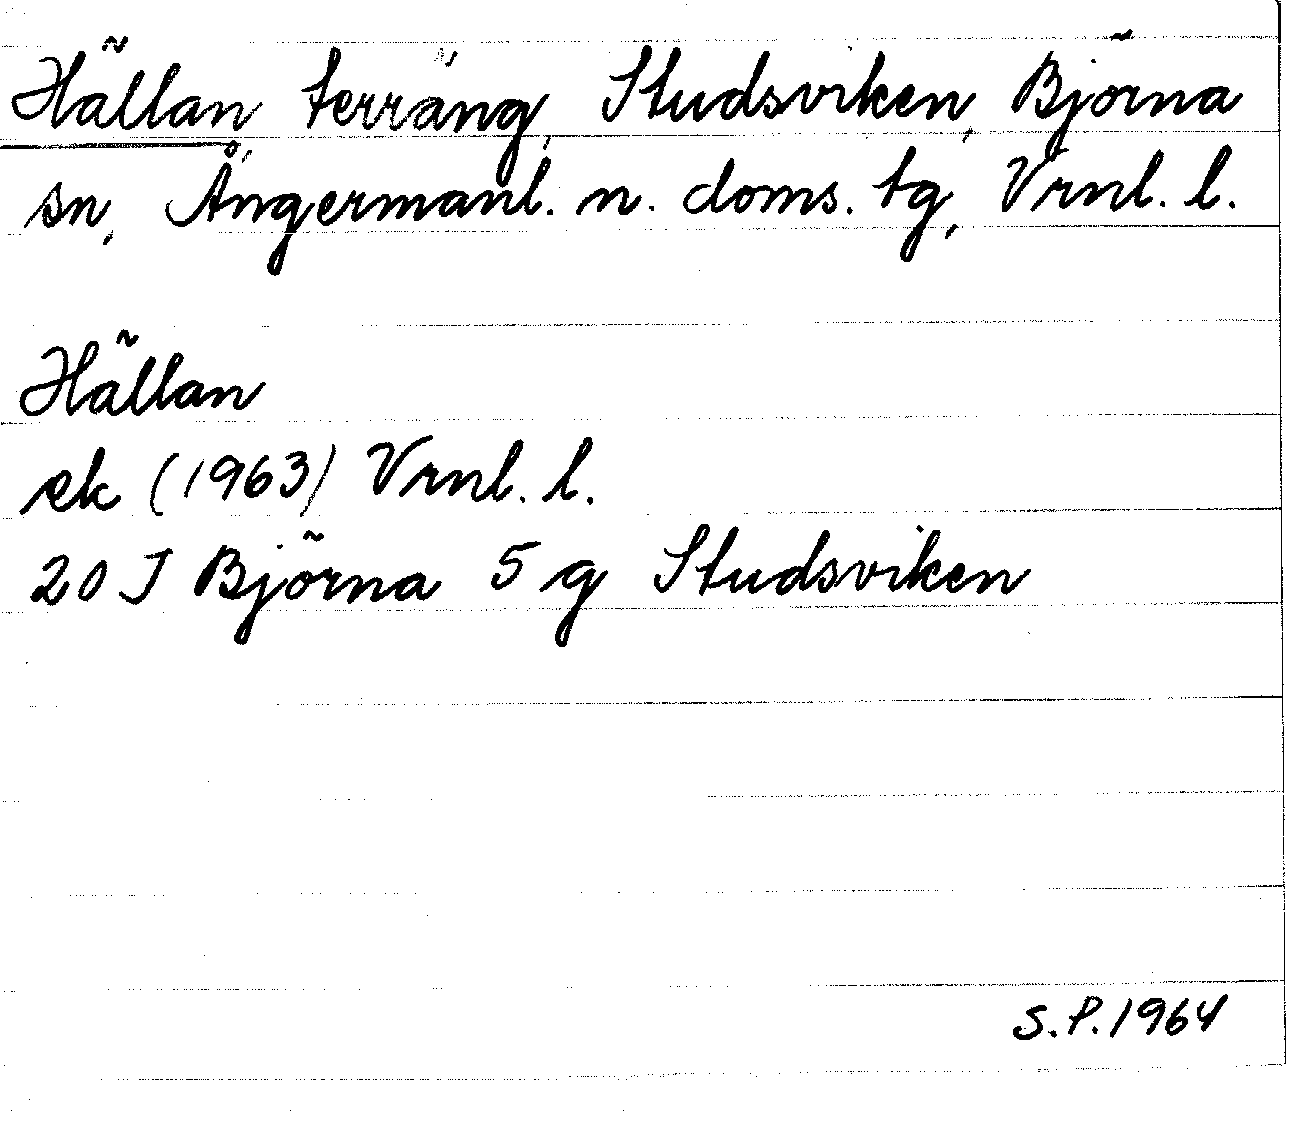 Hällan, terräng, Studsviken, Björna
sn, Ångermanl. n. doms. tg, Vrnl. l.
Hällan
ek (1963) Vrnl. l.
20 J Björna 5 g Studsviken
S.P. 1964